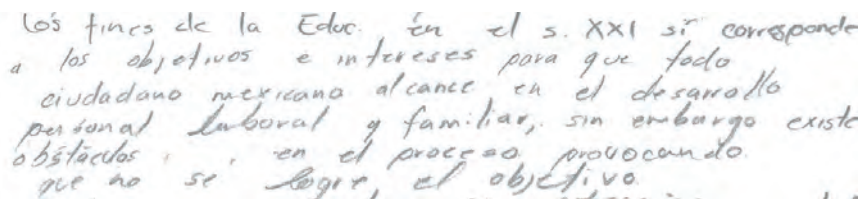 los fines de la Educ. en el s. XXI si corresponde
a los objetivos e intereses para que todo
ciudadano mexicano alcance en el desarrollo
personal laboral y familiar, sin embargo existe
obstáculos , , en el proceso provocando
que no se logre, el objetivo